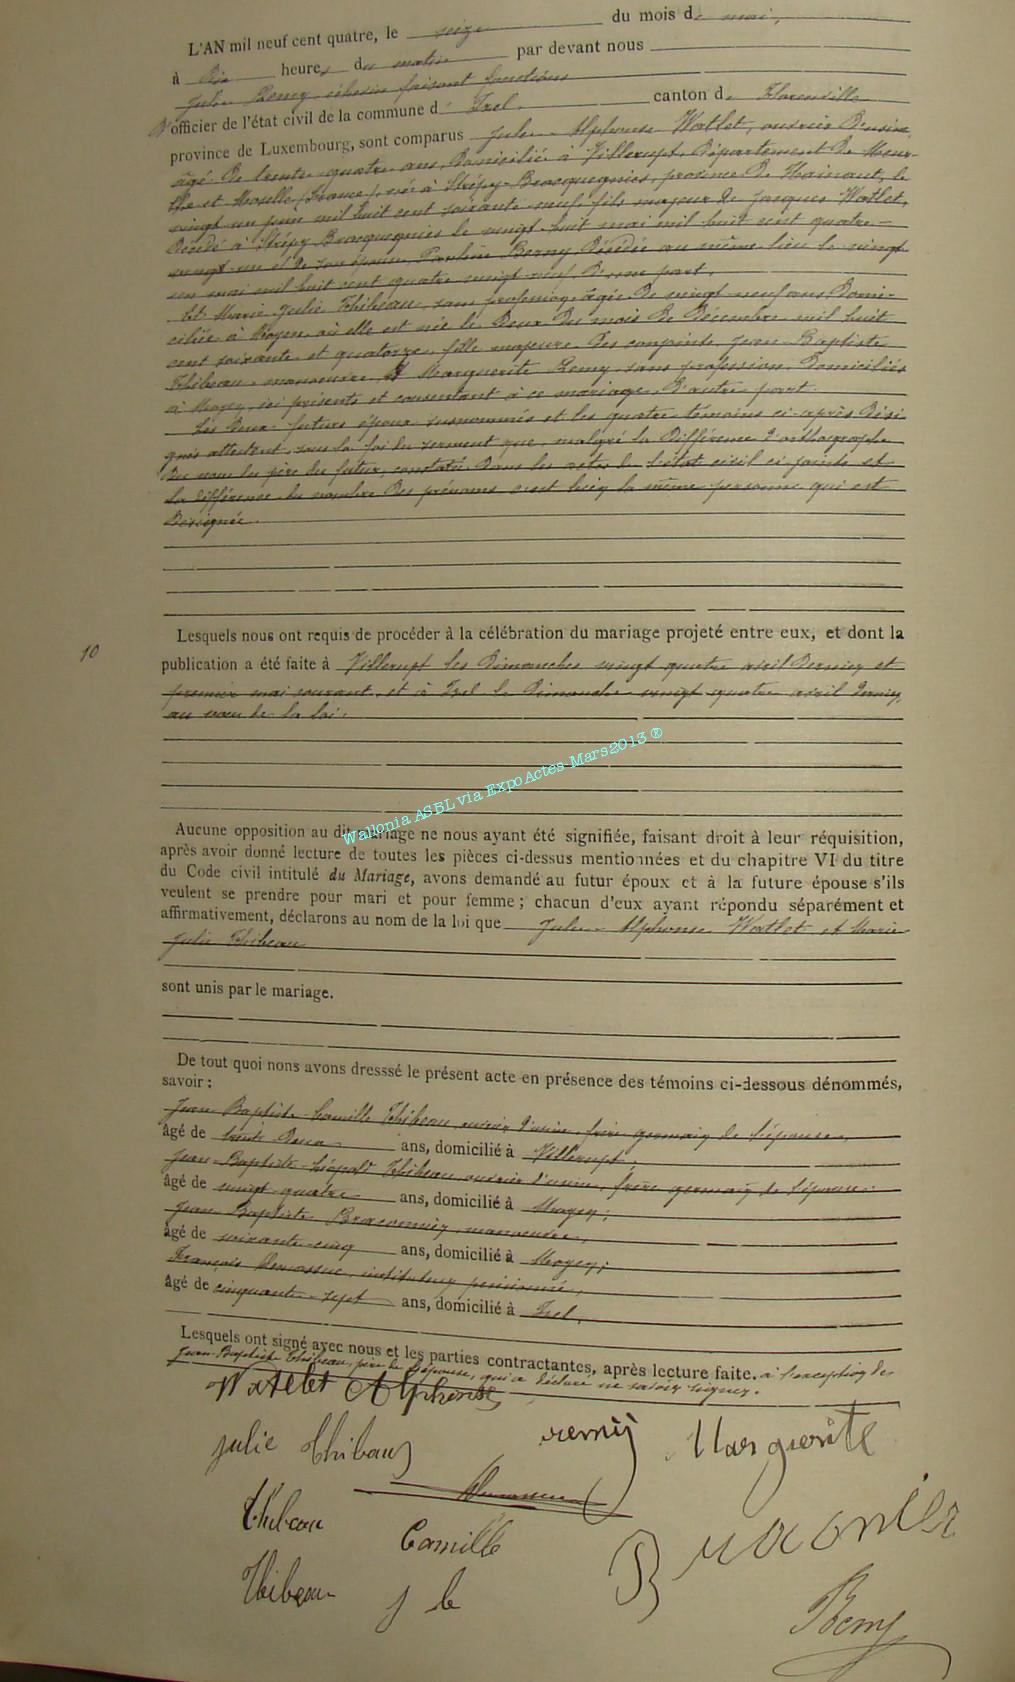 L'AN mil neuf cent quatre, le seize du mois de mai,
à dix heures du matin par devant nous
Jules Remy, échevin faisant fonctions
d'officier de l'état civil de la commune d' Izel, canton de Florenville
province de Luxembourg, sont comparus Jules Alphonse Watlet, ouvrier d'usine,
âgé de trente-quatre ans, domicilié à Villerupt, Département de Meur-
the et Moselle (France), né à Strépy-Bracquegnies, province de Hainaut, le
vingt un juin mil huit cent soixante-neuf, fils majeur de Jacques Watlet,
décédé à Strépy Bracquegnies le vingt-huit mai mil huit cent quatre-
vingt-un et de son épouse Pauline Berny décédée au même lieu le vingt
un mai mil huit cent quatre vingt-neuf d'une part,
Et Marie Julie Thibeau, sans profession, âgée de vingt-neuf ans, domi-
ciliée à Moyen, où elle est née le deux du mois de décembre mil huit
cent soixante et quatorze, fille majeure des conjoints Jean Baptiste
Thibeau, manoeuvre, et Marguerite Remy, sans profession, domiciliés
à Moyen, ici présents et consentant à ce mariage, d'autre part.
Les deux futurs époux susnommés et les quatre témoins ci-après dési-
gnés attestent, sous la foi du serment que, malgré la différence d'orthographe
du nom du père du futur, constatée dans les actes de l'état civil ci-joints et
la différence du nombre des prénoms c'est bien la même personne qui est
désignée.
10
Lesquels nous ont requis de procéder à la célébration du mariage projeté entre eux, et dont la
publication a été faite à Villerupt les dimanches vingt quatre avril dernier et
premier mai courant, et à Izel le dimanche vingt quatre avril dernier,
au voeu de la loi.
Wallonia ASBL via ExpoActes Mars2013 ®
Aucune opposition au dit mariage ne nous ayant été signifiée, faisant droit à leur réquisition,
après avoir donné lecture de toutes les pièces ci-dessus mentionnées et du chapitre VI du titre
du Code civil intitulé du Mariage, avons demandé au futur époux et à la future épouse s'ils
veulent se prendre pour mari et pour femme ; chacun d'eux ayant répondu séparément et
affirmativement, déclarons au nom de la loi que Jules Alphonse Watlet et Marie
Julie Thibeau
sont unis par le mariage.
De tout quoi nons avons dresssé le présent acte en présence des témoins ci-dessous dénommés,
savoir :
Jean Baptiste Camille Thibeau, ouvrier d'usine, frère germain de l'épouse,
âgé de trente deux ans, domicilié à Villerupt,
Jean-Baptiste-Léopold Thibeau, ouvrier d'usine, frère germain de l'épouse,
âgé de vingt-quatre ans, domicilié à Moyen ;
Jean Baptiste Braconnier, manoeuvre,
âgé de soixante-cinq ans, domicilié à Moyen ;
François instituteur pensionné,
âgé de cinquante-sept ans, domicilié à Izel.
Lesquels ont signé avec nous et les parties contractantes, après lecture faite. à l'exception de
Jean-Baptiste Thibeau, père de l'épouse, qui a déclaré ne savoir signer.
Watelet Alphonse
julie thibaux remij Marguerite
Thibeau Camille Braconier
Thibeau j b
Remy